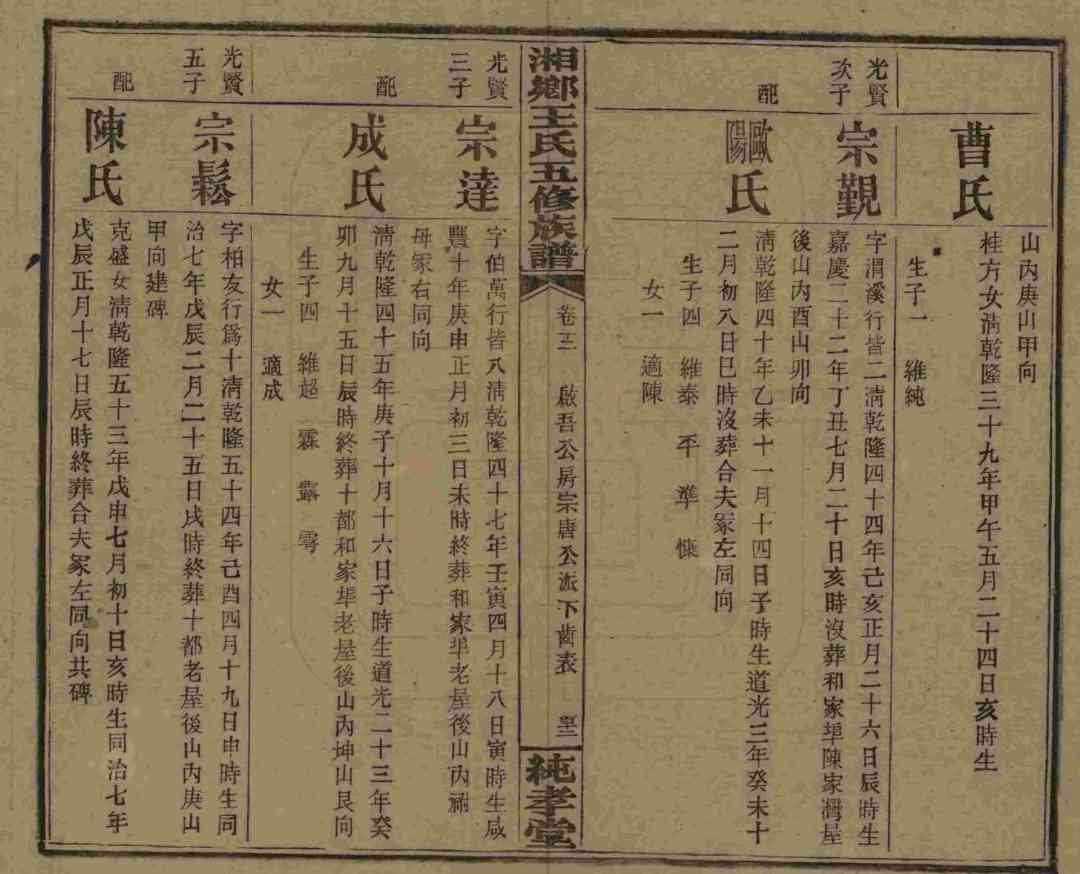 曹氏
山內庚山甲向
桂方女淸乾隆三十九年甲午五月二十四日亥時生
生子一　維純
光賢次子
宗覲
字渭溪行皆二淸乾隆四十四年己亥正月二十六日辰時生
嘉慶二十二年丁丑七月二十日亥時沒葬和家埠陳家灣屋
後山內酉山卯向
配
歐陽氏
淸乾隆四十年乙未十一月十四日子時生道光三年癸未十
二月初八日巳時沒葬合夫冢左同向
生子四　維泰　平　準　慷
女一　適陳
湘鄉王氏五修族譜
卷三　啟吾公房宗唐公派下齒表
純孝堂
光賢三子
宗達
字伯萬行皆八淸乾隆四十七年壬寅四月十八日寅時生咸
豐十年庚申正月初三日未時終葬和家埠老屋後山內祔
母冢右同向
配
成氏
淸乾隆四十五年庚子十月十六日子時生道光二十三年癸
卯九月十五日辰時終葬十都和家埠老屋後山內坤山艮向
生子四　維超　霖　霽　雱
女一　適成
光賢五子
宗鬆
字柏友行爲十淸乾隆五十四年己酉四月十九日申時生同
治七年戊辰二月二十五日戌時終葬十都老屋後山內庚山
甲向建碑
配
陳氏
克盛女淸乾隆五十三年戊申七月初十日亥時生同治七年
戊辰正月十七日辰時終葬合夫冢左同向共碑